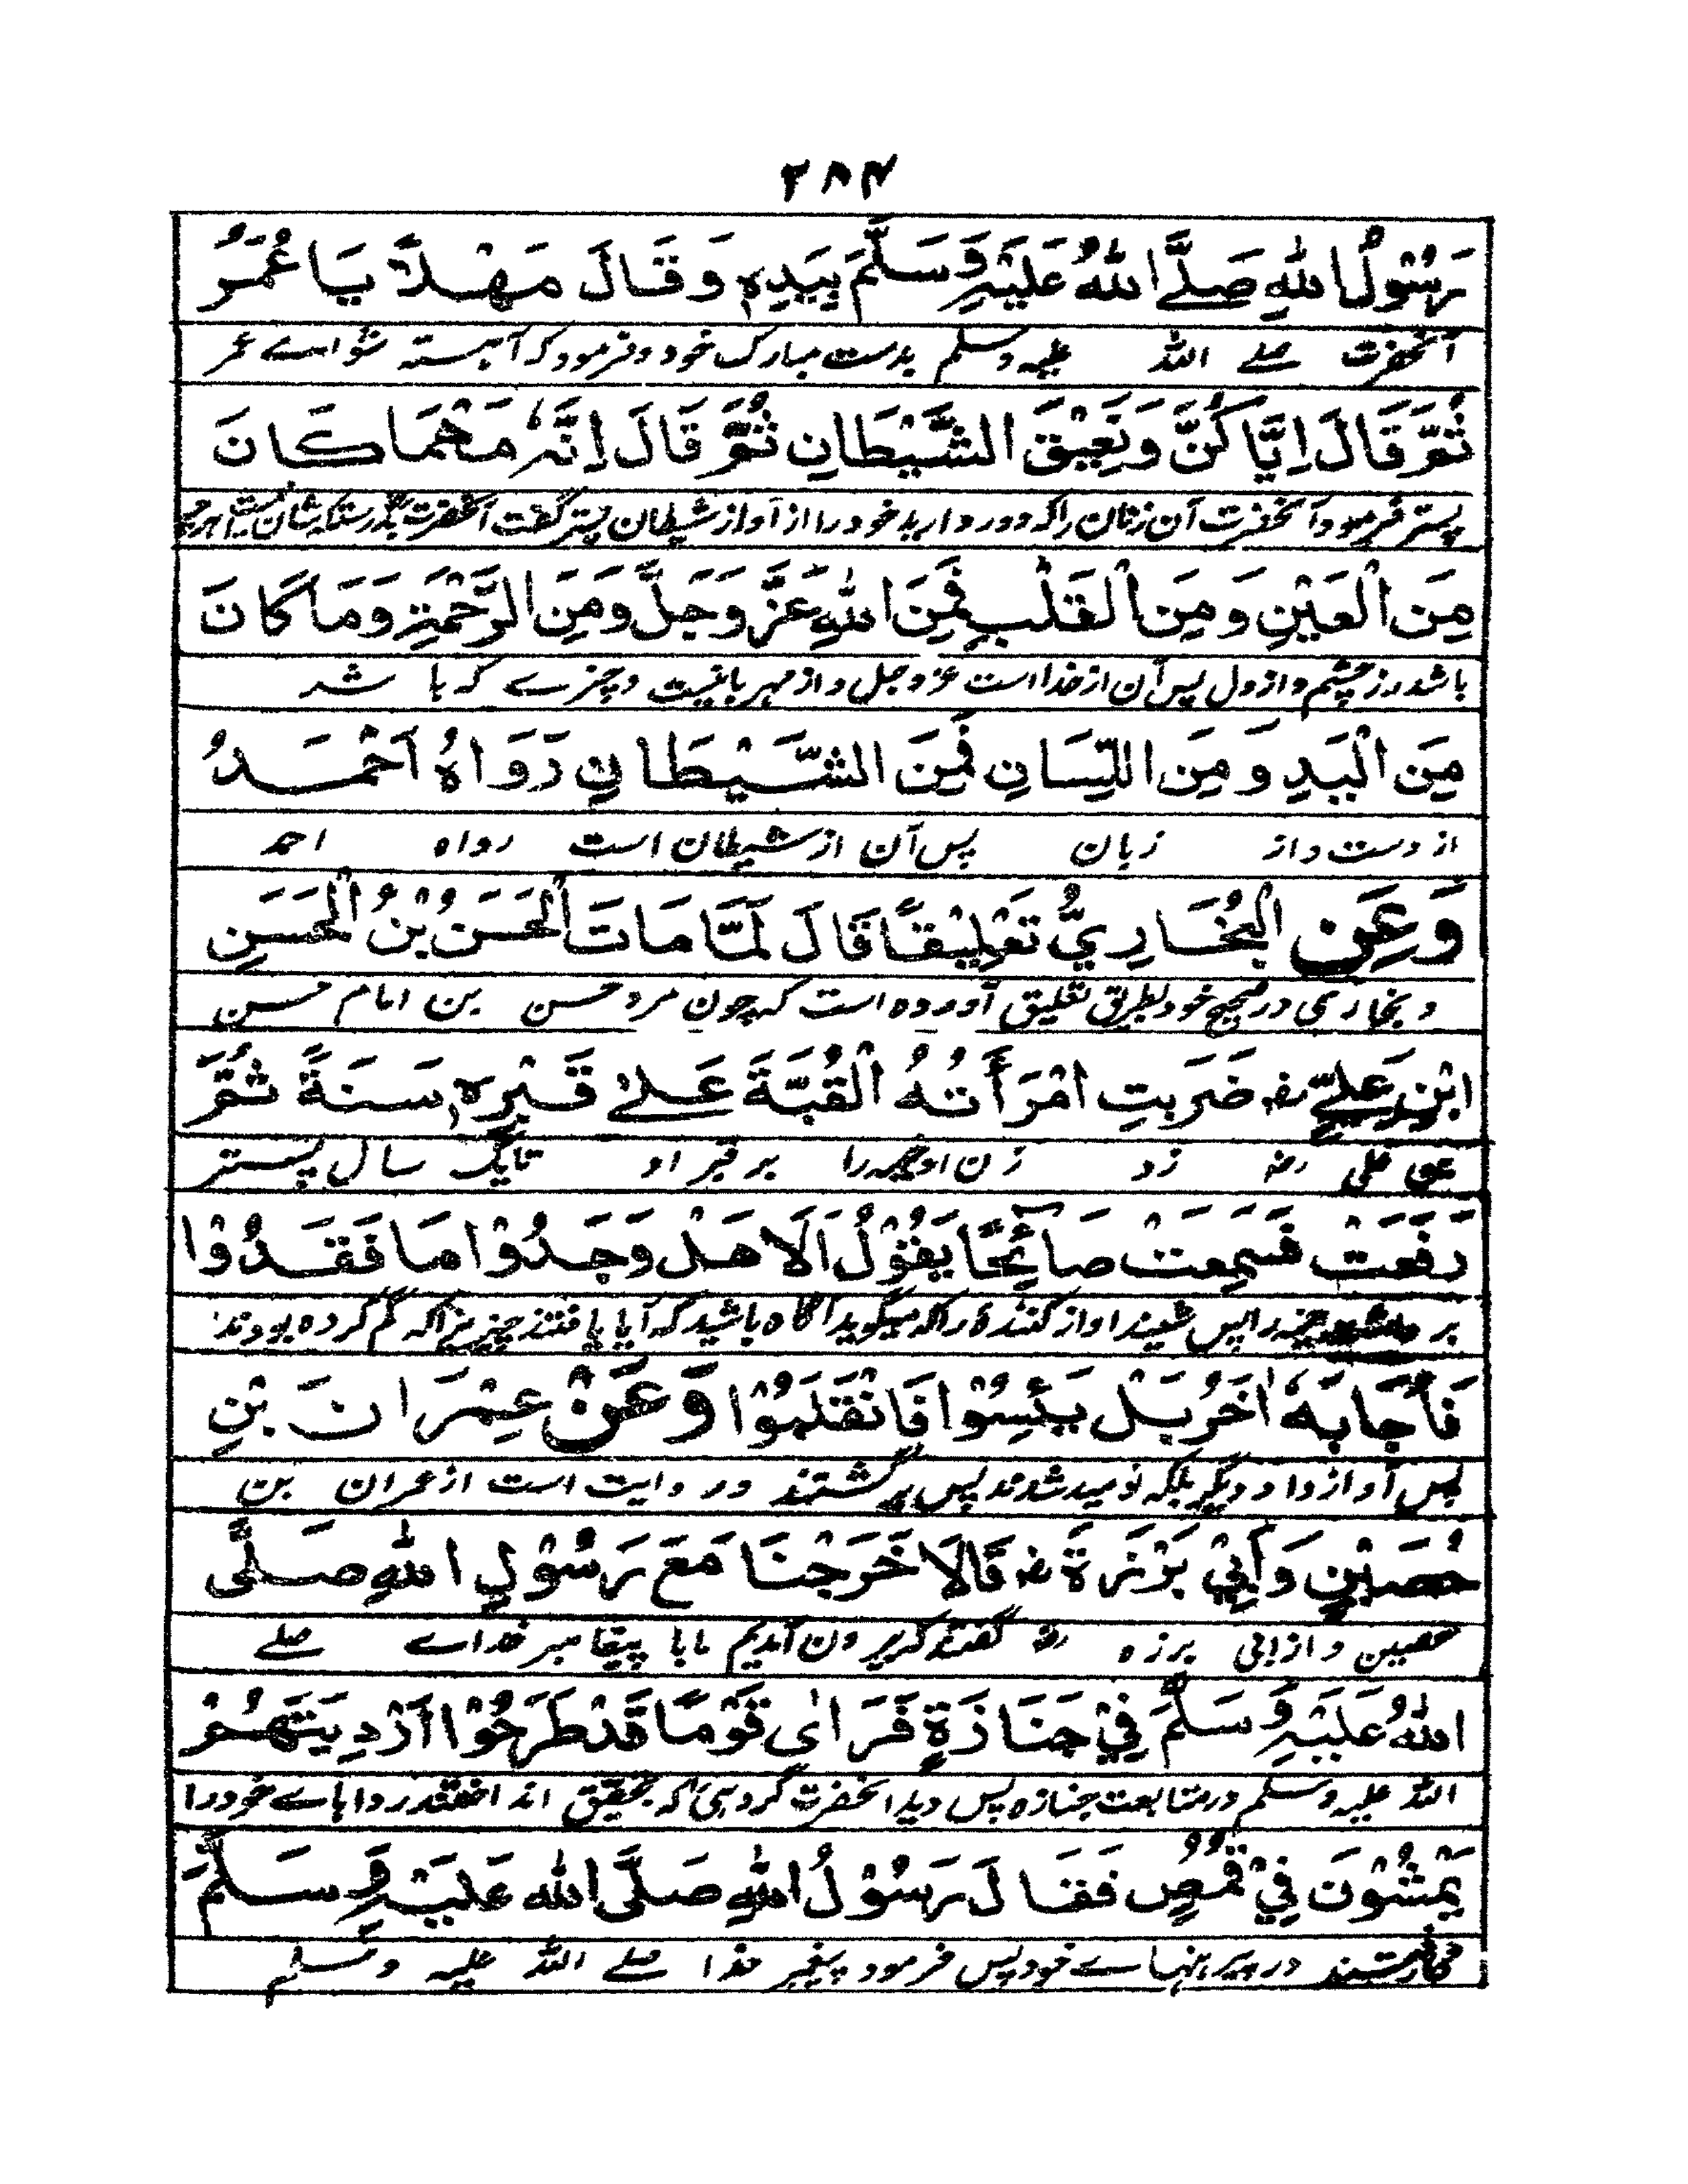 ۲۸۴
رَسُوْلُ اللهِ صَلَّى اللهُ عَلَيْهِ وَسَلَّمَ بِيَدِهٖ وَقَالَ مَهْلًا يَا عُمَرُ
آنحضرت صلے اللہ علیہ وسلم بدست مبارک خود و فرمود کہ آہستہ شو اے عمر
ثُمَّ قَالَ اِيَّاكُنَّ وَنَعِيْقَ الشَّيْطَانِ ثُمَّ قَالَ اِنَّهٗ مَهْمَا كَانَ
پستر فرمود آنحضرت آن زنان را کہ دور دارید خود را از آواز شیطان پستر گفت آنحضرت
مِنَ الْعَيْنِ وَمِنَ الْقَلْبِ فَمِنَ اللهِ عَزَّ وَجَلَّ وَمِنَ الرَّحْمَةِ وَمَا كَانَ
باشد از چشم و از دل پس آن از خدا است عز و جل و از مہربانیست و چیزے کہ با شد
مِنَ الْيَدِ وَمِنَ اللِّسَانِ فَمِنَ الشَّيْطَانِ رَوَاهُ اَحْمَدُ
از دست و از زبان پس آن از شیطان است رواہ احمد
وَعَنِ الْبُخَارِيِّ تَعْلِيْقًا قَالَ لَمَّا مَاتَ الْحَسَنُ بْنُ الْحَسَنِ
و بخاری در صحیح خود بطریق تعلیق آورده است کہ چون مرد حسن بن امام حسن
ابْنِ عَلِيٍّ رض ضَرَبَتِ امْرَأَتُهُ الْقُبَّةَ عَلٰے قَبْرِهٖ سَنَةً ثُمَّ
علی رض زد زن او خیمہ را بر قبر او تا یک سال پستر
رَفَعَتْ فَسَمِعَتْ صَائِحًا يَقُوْلُ اَلَا هَلْ وَجَدُوْا مَا فَقَدُوْا
بر خیمہ را پس شنید آواز کنندۂ را کہ میگوید آگاہ باشید کہ آیا یافتند چیزے را کہ گم کرده بودند
فَاَجَابَهٗ اٰخَرُ بَلْ يَئِسُوْا فَانْقَلَبُوْا وَعَنْ عِمْرَانَ بْنِ
پس آواز داد دیگر بلکہ نومید شدند پس برگشتند و روایت است از عمران بن
حُصَيْنٍ وَاَبِيْ بَرْزَةَ رض قَالَا خَرَجْنَا مَعَ رَسُوْلِ اللهِ صَلَّى
حصین و از ابی برزه رض گفتند کہ بیرون آمدیم ما با پیغامبر خداے صلے
اللهُ عَلَيْهِ وَسَلَّمَ فِيْ جَنَازَةٍ فَرَاٰى قَوْمًا قَدْ طَرَحُوْا اَرْدِيَتَهُمْ
اللہ علیہ وسلم در متابعت جنازه پس دید آنحضرت گروہی کہ بتحقیق انداختند رداہاے خود را
يَمْشُوْنَ فِيْ قُمُصٍ فَقَالَ رَسُوْلُ اللهِ صَلَّى الله عَلَيْهِ وَسَلَّمَ
در پیرہنہاے خود پس فرمود پیغمبر خدا صلے اللہ علیہ وسلم